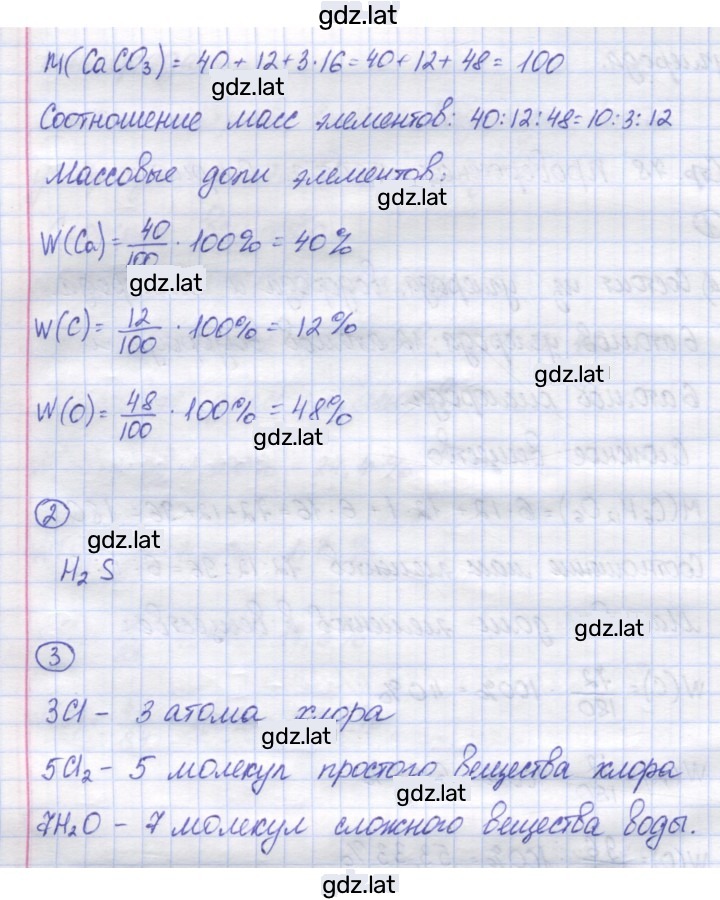 gdz.lat
M(CaCO₃) = 40 + 12 + 3·16 = 40 + 12 + 48 = 100
gdz.lat
Соотношение масс элементов: 40:12:48 = 10:3:12
Массовые доли элементов:
gdz.lat
W(Ca) = 40/100 · 100% = 40%
gdz.lat
W(C) = 12/100 · 100% = 12%
gdz.lat
W(O) = 48/100 · 100% = 48%
gdz.lat
2
gdz.lat
H₂S
gdz.lat
3
3Cl – 3 атома хлора
gdz.lat
5Cl₂ – 5 молекул простого вещества хлора
gdz.lat
7H₂O – 7 молекул сложного вещества воды.
gdz.lat